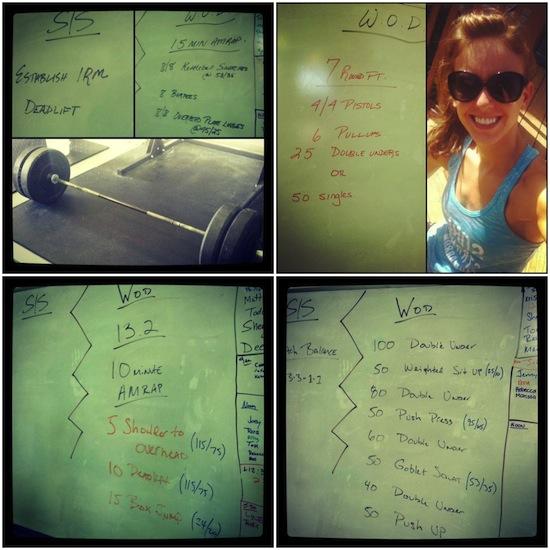 S/S
ESTABLISH 1RM
DEADLIFT
W.O.D
15 MIN AMRAP.
8/8 KETTLEBELL SNATCHES
@ 53/35
8 BURPEES
8/8 OVERHEAD PLATE LUNGES
@45/25
W.O.D
7 ROUND FT.
4/4 PISTOLS
6 PULLUPS
25 DOUBLE UNDERS
OR
50 singles
S/S
WOD
13.2
10 MINUTE
AMRAP
5 Shoulder to
overhead (115/75)
10 Deadlift (115/75)
15 Box Jump (24/20)
Matt
Noon
S/S
Balance
3-3-1-1
WOD
100 Double Under
50 Weighted Sit UP (25/10)
80 Double Under
50 Push Press (95/65)
60 Double Under
50 Goblet Squat (53/35)
40 Double Under
50 Push UP
Jenny
Rebecca
NOON